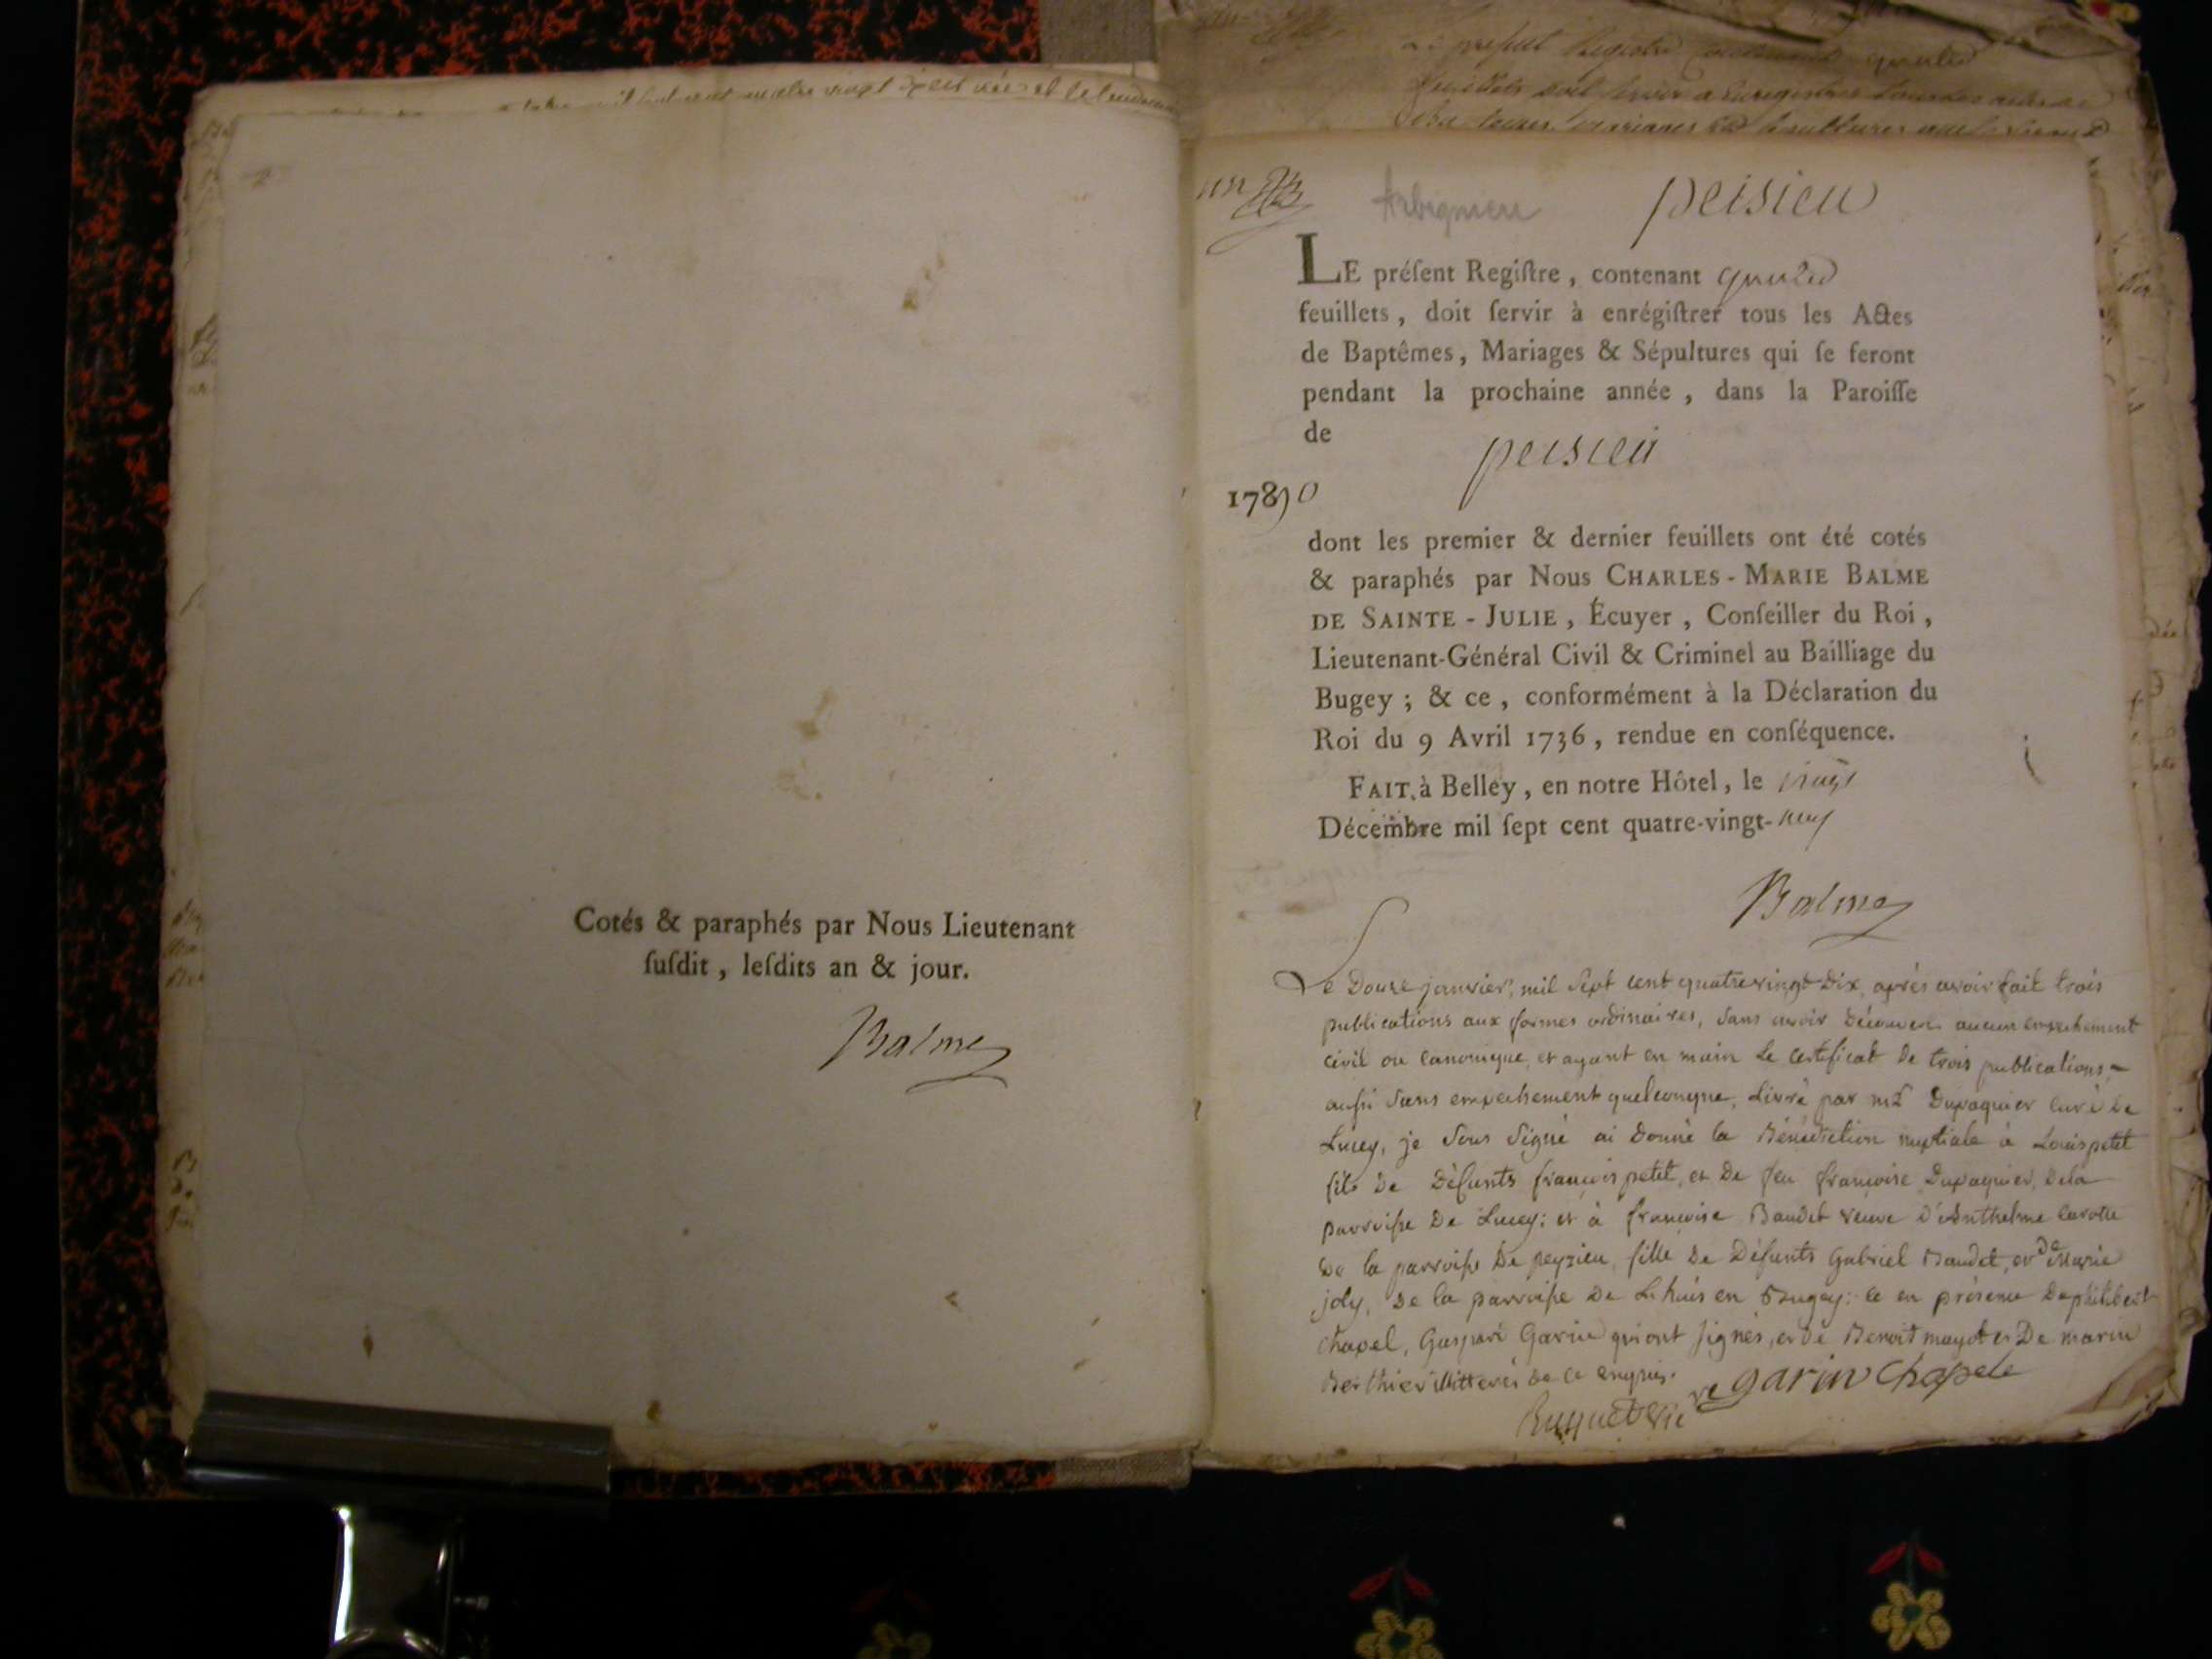 Cotés & paraphés par Nous Lieutenant
ſuſdit, leſdits an & jour.
Balme
feuillets doit servir a enregistrer
un
Arbignieu
peisieu
LE préſent Regiſtre, contenant
feuillets, doit ſervir à enrégiſtrer tous les Actes
de Baptêmes, Mariages & Sépultures qui ſe feront
pendant la prochaine année, dans la Paroiſſe
de
peisieu
1790
dont les premier & dernier feuillets ont été cotés
& paraphés par Nous CHARLES-MARIE BALME
DE SAINTE-JULIE, Écuyer, Conſeiller du Roi,
Lieutenant-Général Civil & Criminel au Bailliage du
Bugey ; & ce, conformément à la Déclaration du
Roi du 9 Avril 1736, rendue en conſéquence.
FAIT à Belley, en notre Hôtel, le vingt
Décembre mil ſept cent quatre-vingt-neuf
Balme
Le Douze janvier, mil Sept cent quatre vingt Dix, après avoir fait trois
publications aux formes ordinaires, Sans avoir Découvert aucun empechement
civil ou canonique, et ayant en main Le Certificat De trois publications
aussi Sans empechement quelconque, Livré par mr Dupaquier curé De
Lucey, je Sous Signé ai Donné la Bénédiction nuptiale à Louis petit
fils De Défunts françois petit, et De feu françoise Dupaquier, De la
parroisse De Lucey; et à françoise Baudet veuve D'Anthelme
De la parroisse De peyzieu, fille De Défunts Gabriel Baudet, et De Marie
joly, De la parroisse De Lhuis en Bugey: ce en présence De philibert
Chapel, Gaspard Garin qui ont Signés, et De Benoit mayot et De marin
Berthier illitterés De ce enquis.
garin Chapele
Buyuet vicre